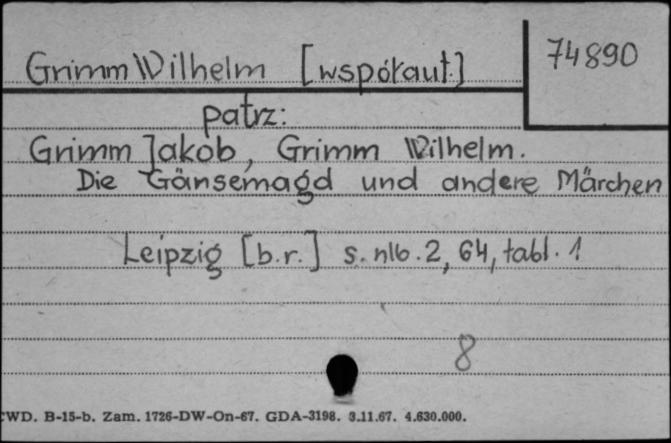 Grimm Wilhelm [współaut.]
74890
patrz:
Grimm Jakob, Grimm Wilhelm.
Die Gänsemagd und andere Märchen
Leipzig [b.r.] s. nlb. 2, 64, tabl. 1
8
CWD. B-15-b. Zam. 1726-DW-On-67. GDA-3198. 3.11.67. 4.630.000.